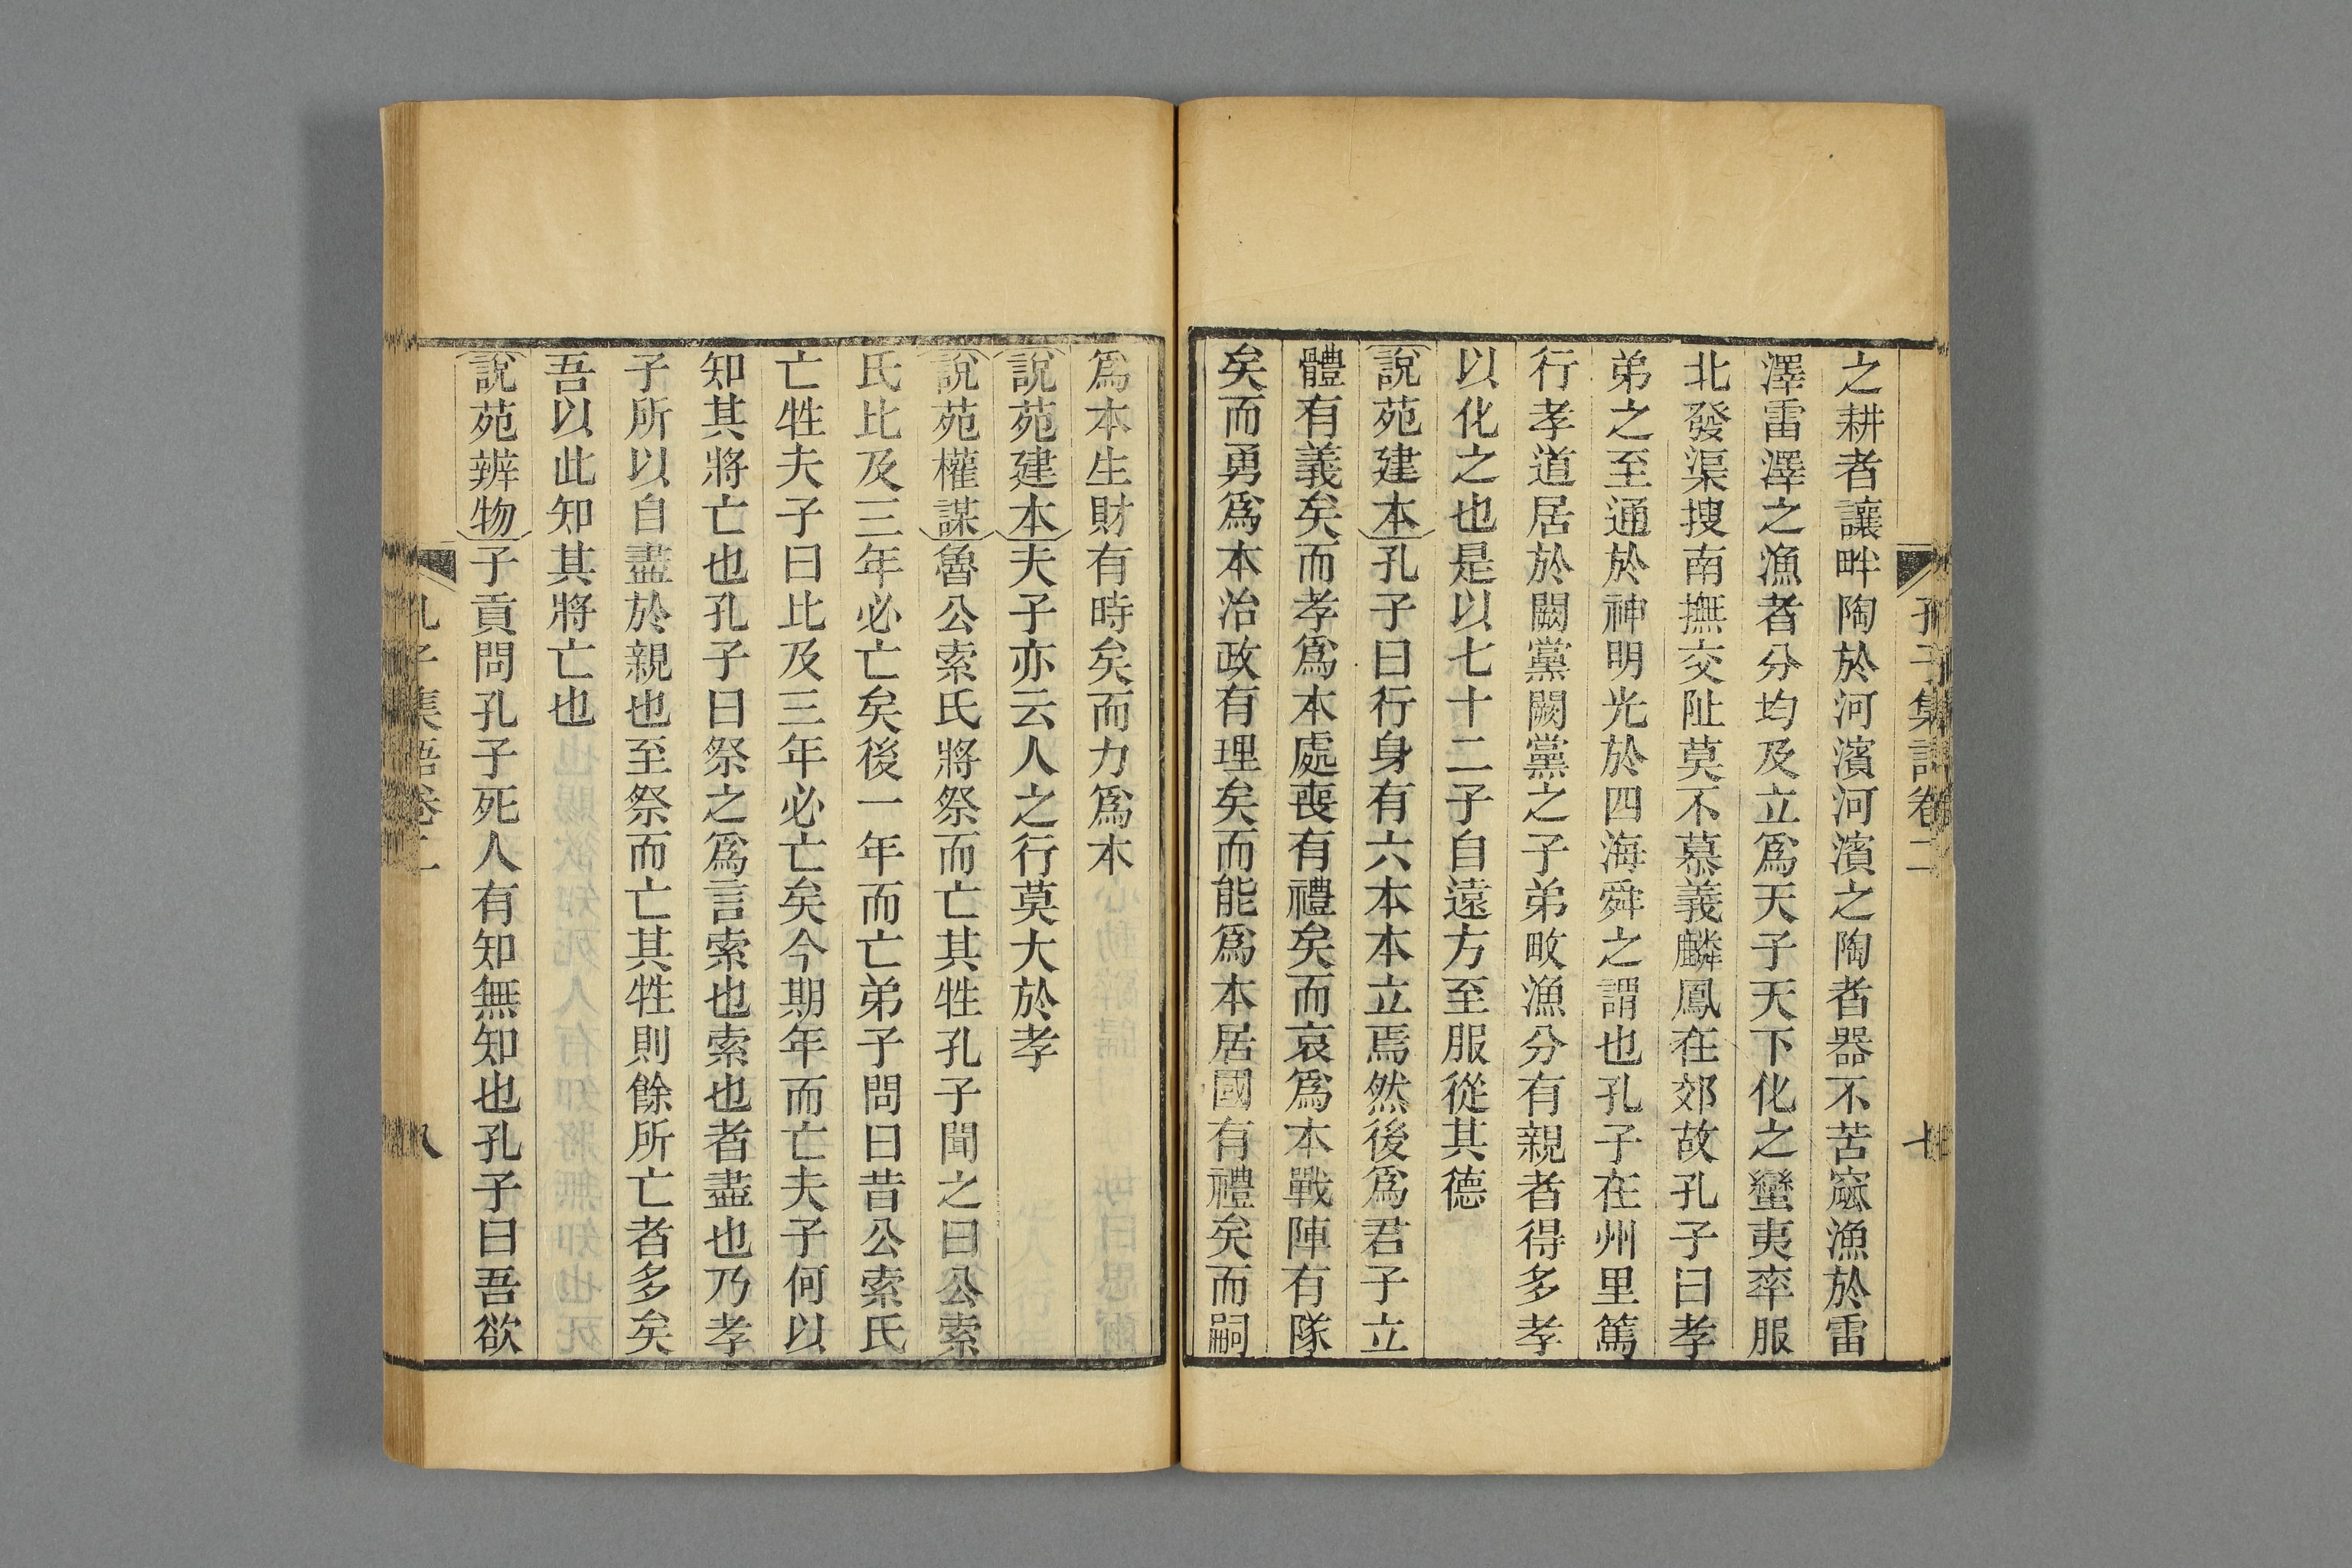 孔子集語卷二 七
之耕者讓畔陶於河濱河濱之陶者器不苦窳漁於雷
澤雷澤之漁者分均及立爲天子天下化之蠻夷率服
北發渠搜南撫交阯莫不慕義麟鳳在郊故孔子曰孝
弟之至通於神明光於四海舜之謂也孔子在州里篤
行孝道居於闕黨闕黨之子弟畋漁分有親者得多孝
以化之也是以七十二子自遠方至服從其德
說苑建本孔子曰行身有六本本立焉然後爲君子立
體有義矣而孝爲本處喪有禮矣而哀爲本戰陣有隊
矣而勇爲本治政有理矣而能爲本居國有禮矣而嗣
爲本生財有時矣而力爲本
說苑建本夫子亦云人之行莫大於孝
說苑權謀魯公索氏將祭而亡其牲孔子聞之曰公索
氏比及三年必亡矣後一年而亡弟子問曰昔公索氏
亡牲夫子曰比及三年必亡矣今期年而亡夫子何以
知其將亡也孔子曰祭之爲言索也索也者盡也乃孝
子所以自盡於親也至祭而亡其牲則餘所亡者多矣
吾以此知其將亡也
說苑辨物子貢問孔子死人有知無知也孔子曰吾欲
孔子集語卷二 八